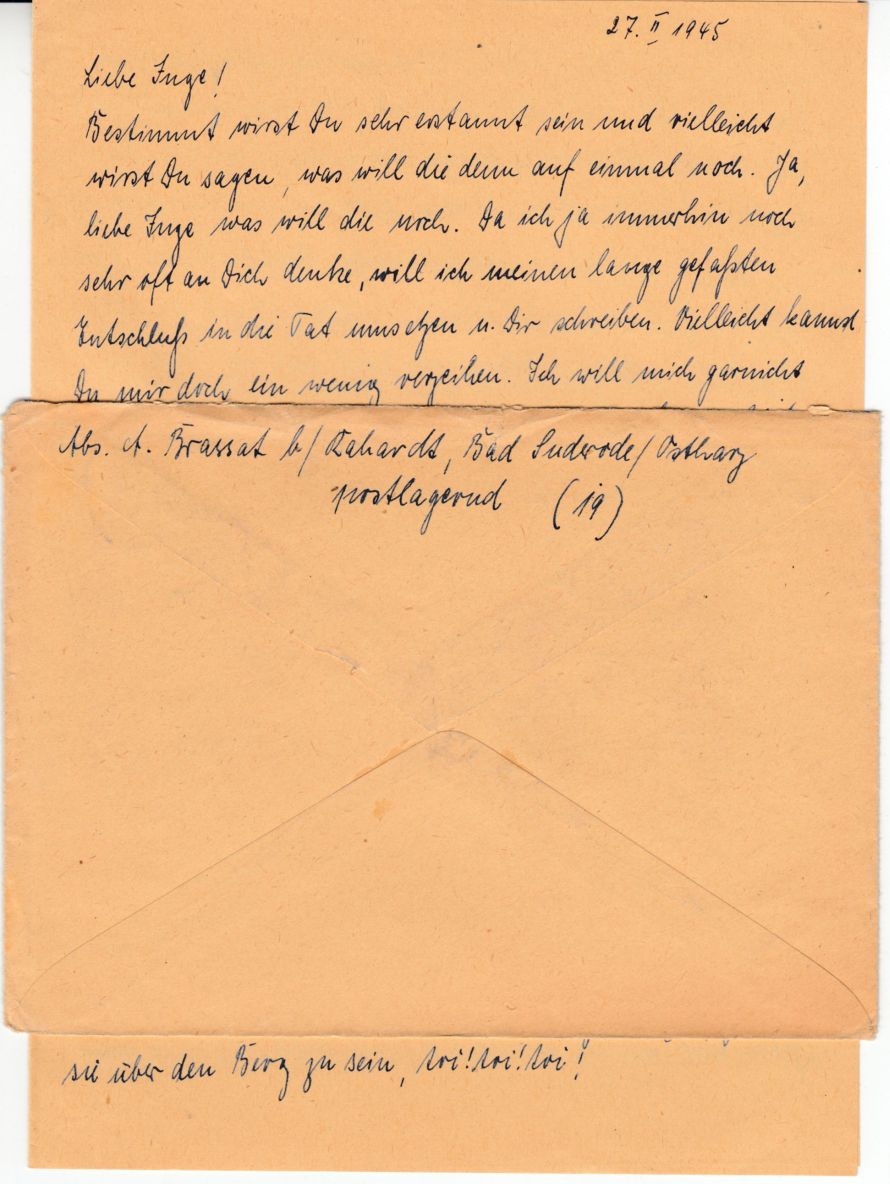 27. II 1945
Liebe Inge!
Bestimmt wirst Du sehr erstaunt sein und vielleicht
wirst Du sagen, was will die denn auf einmal noch. Ja,
liebe Inge was will die noch. Da ich ja immerhin noch
sehr oft an Dich denke, will ich meinen lange gefaßten
Entschluß in die Tat umsetzen u. Dir schreiben. Vielleicht kannst
Du mir doch ein wenig verzeihen. Ich will mich garnicht
Abs. A. Brassat b/ Kahardt, Bad Suderode/Ostharz
postlagernd (19)
sie über den Berg zu sein, toi! toi! toi!